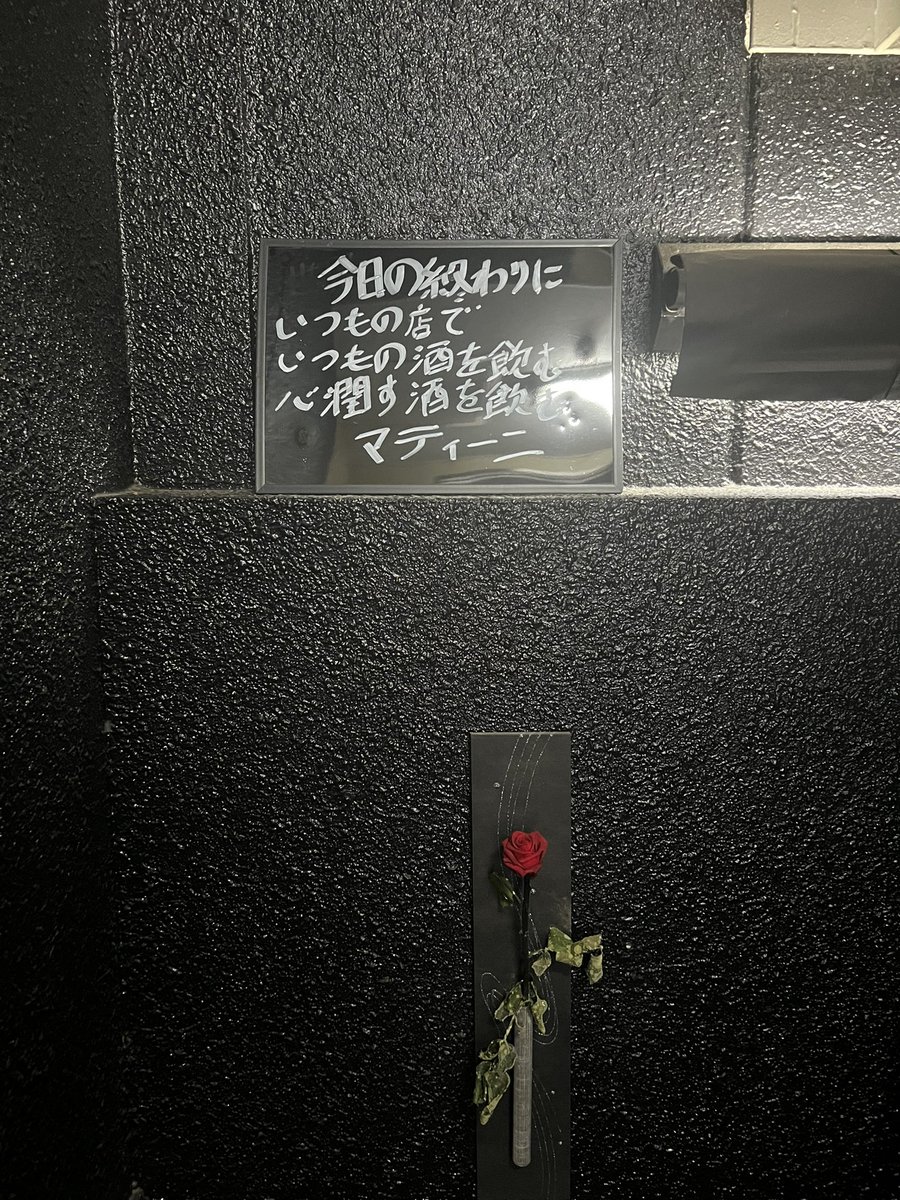 今日の終わりに
いつもの店で
いつもの酒を飲む
心潤す酒を飲む
マティーニ